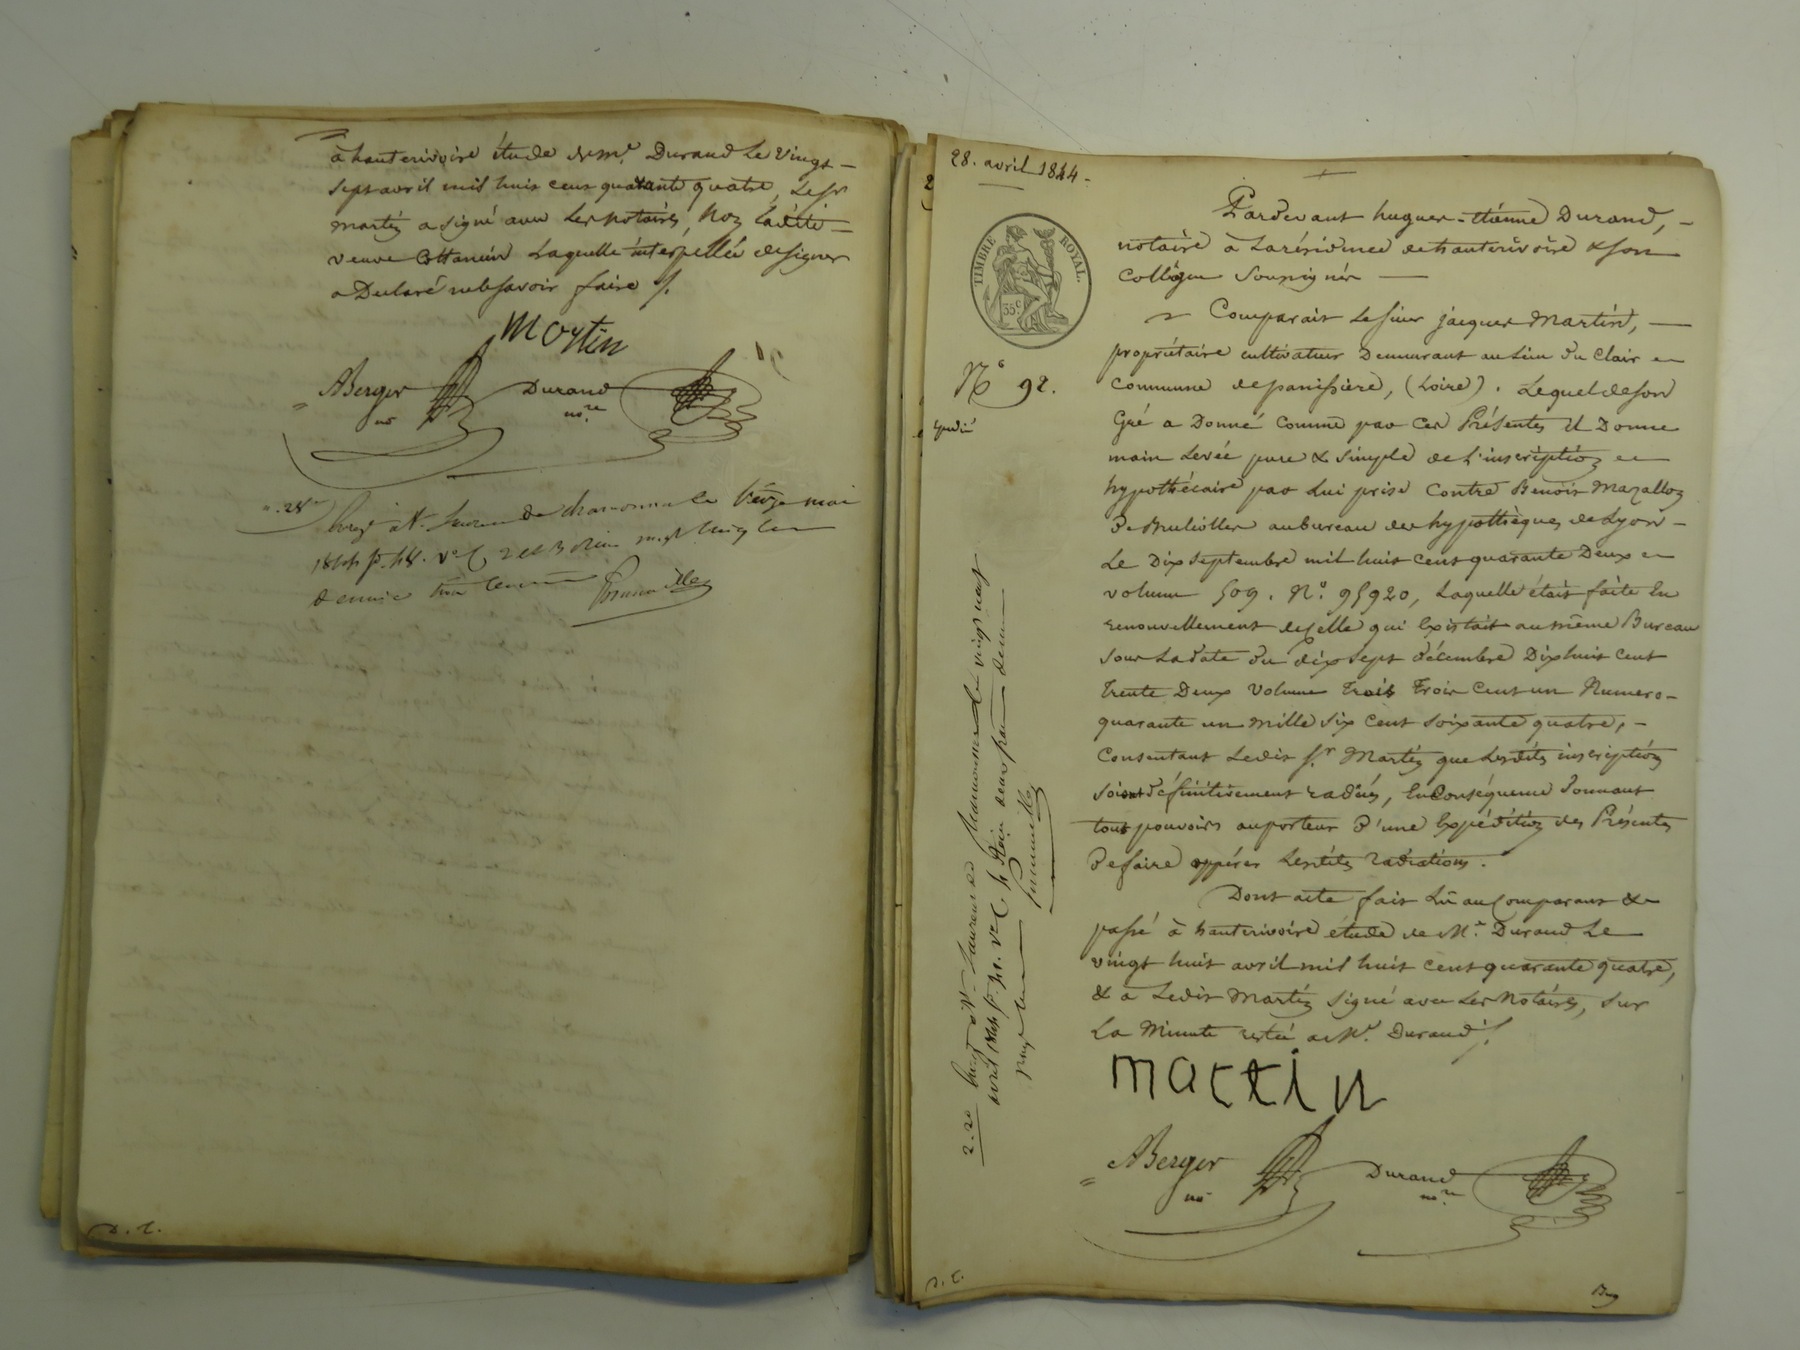 à hauterivoire étude de me. Durand Le vingt
sept avril mil huit cent quarante quatre, Le sr
martin a signé avec Les notaires, Non Ladite
veuve Cottancin Laquelle interpellée de signer
a Declaré ne le savoir faire /.
martin
ABerger
no
Durand
nore
Enregé à St. Laurent de chamousset le treize mai
1844 fo. 48. vo C
Grimaille
D. L.
28. avril 1844
TIMBRE ROYAL.
35c
No 92.
Expédié
Pardevant hugues-étienne Durand,
notaire à La résidence de hauterivoire & son
Collègue Soussignés
Comparait Le sieur jacques Martin,
propriétaire cultivateur Demeurant au Lieu du Clair
Commune de panissière, (Loire). Lequel de son
Gré a Donné Comme par Ces Présentes Il Donne
main Levée pure & simple de L'inscription
hypothécaire par Lui prise Contre Benoit Mazallon
De Brulioller au bureau des hypothèques de Lyon
Le Dix septembre mil huit cent quarante Deux
volume 509. No. 95920, Laquelle était faite En
renouvellement de Celle qui Existait au même Bureau
sous La date du dix sept décembre Dix huit cent
trente Deux volume trois trois Cent un Numero
quarante un mille six cent soixante quatre,
Consentant Ledit sr. Martin que Lesdites inscriptions
soient définitivement radiées, En Conséquence Donnant
tout pouvoirs au porteur D'une Expédition des Présentes
De faire oppérer Lesdites radiations.
Dont acte fait Lu au Comparant &
passé à hauterivoire étude de Me. Durand Le
vingt huit avril mil huit cent quarante quatre,
& a Ledit Martin signé avec Les Notaires, Sur
La Minute restée a Me. Durand /.
martin
ABerger
no
Durand
nore
2.20 Enregé à St. Laurent de Chamousset le vingt neuf
avril 1844 fo. 41. vo C
Grimaille
D. L.